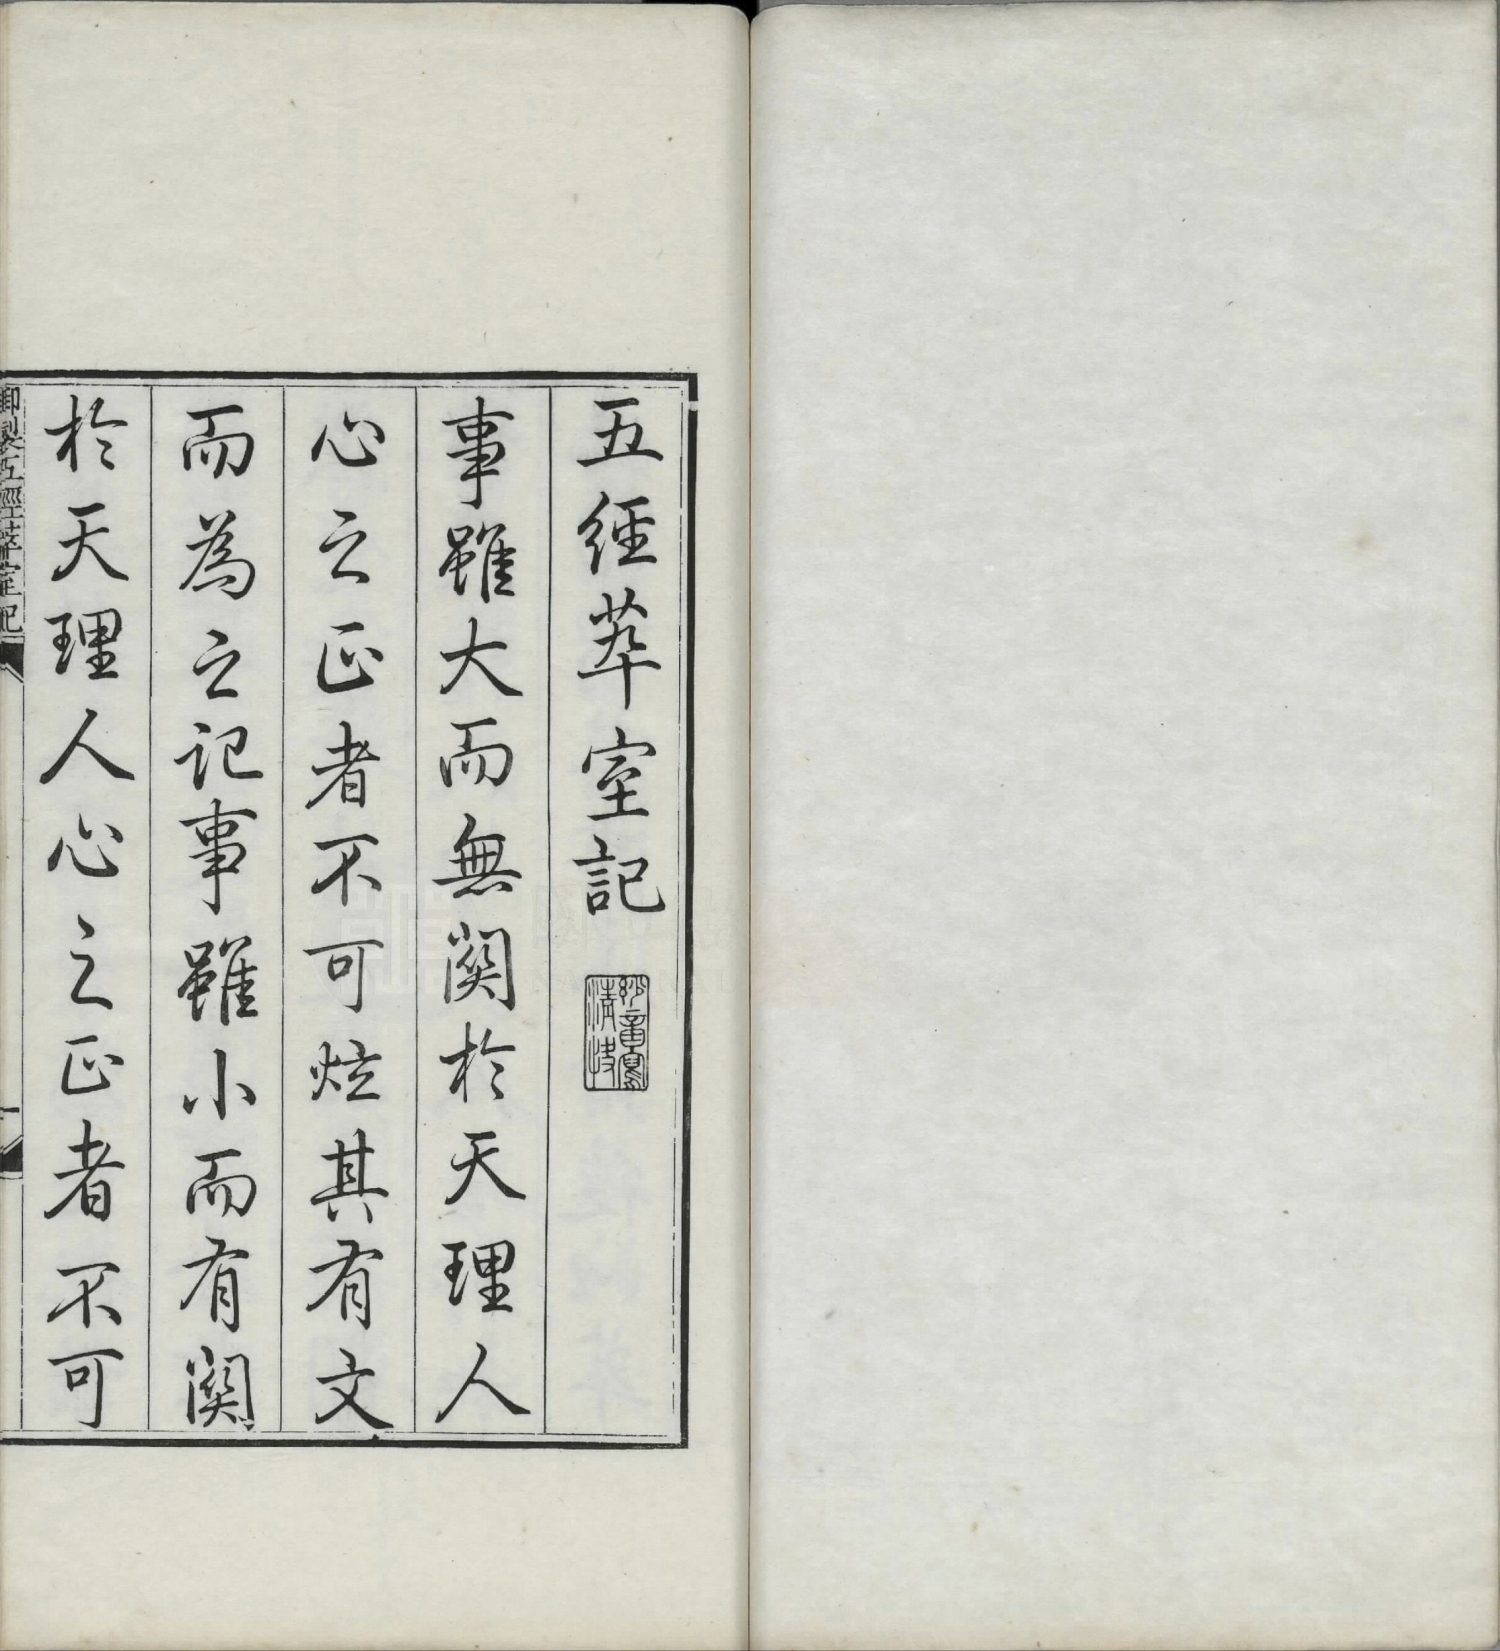 五經萃室記
事雖大而無関於天理人
心之正者不可炫其有文
而為之記事雖小而有関
於天理人心之正者不可
御製五經萃室記
一